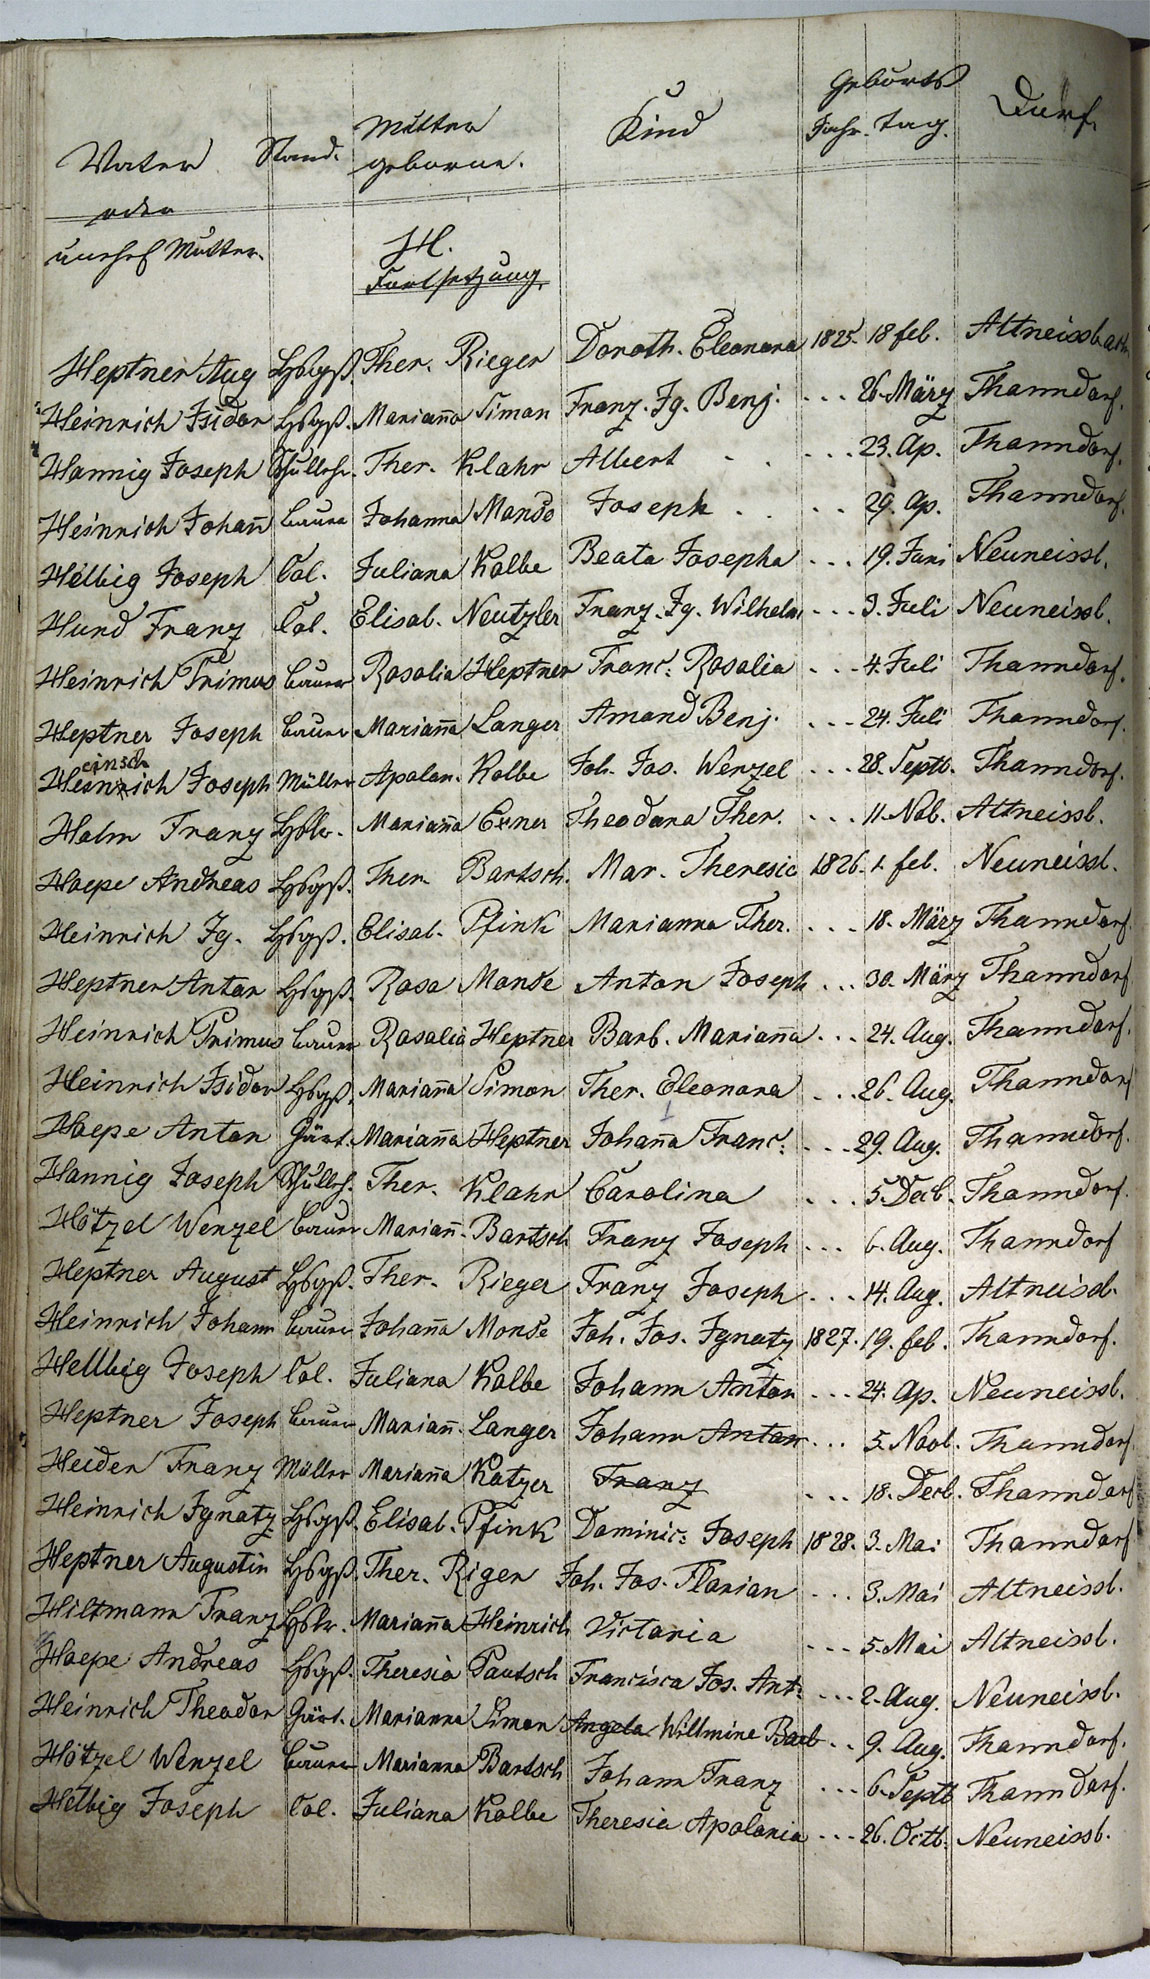 Vater Stand. Mutter geborne. Kind Geburts Jahr. tag. Dorf.
oder
unehel Mutter.
H.
Fortsetzung.
Heptner Aug Hsbgß. Ther. Rieger Doroth. Eleonora 1825. 18 feb. Altneissbach
Heinrich Isidor Hsbgß. Marian̄a Simon Franz. Ig. Benj. - - - 26. März Thanndorf.
Hannig Joseph Schullehr. Ther. Klahr Albert - - - - - 23. Ap. Thanndorf.
Heinrich Johan̄ baur Johanna Monse Joseph - - - - 29. Ap. Thanndorf.
Helbig Joseph Col. Juliana Kolbe Beata Josepha - - - 19. Juni Neuneissb.
Hund Franz Col. Elisab. Neutzler Franz. Ig. Wilhelm - - - 3. Juli Neuneissb.
Heinrich Primus baur Rosalia Heptner Franc. Rosalia - - - 4. Juli Thanndorf.
Heptner Joseph baur Marian̄a Langer Amand Benj. - - - 24. Juli Thanndorf.
einsch
Heinrich Joseph Müller Apolon. Kolbe Joh. Jos. Wenzel - - - 28. Septb. Thanndorf.
Halm Franz Hslr. Marian̄a Exner Theodora Ther. - - - 11. Nob. Altneissb.
Hoepe Andreas Hsbgß. Ther. Bartsch. Mar. Theresia 1826. 1. feb. Neuneissb.
Heinrich Ig. Hsbgß. Elisab. Pfink Marianna Ther. - - - 18. März Thanndorf.
Heptner Anton Hsbgß. Rosa Monse Anton Joseph - - - 30. März Thanndorf
Heinrich Primus baur Rosalia Heptner Barb. Marian̄a - - - 24. Aug. Thanndorf.
Heinrich Isidor Hsbgß. Marian̄a Simon Ther. Eleonora - - - 26. Aug. Thanndorf
Hoepe Anton Gärt. Marian̄a Heptner Johan̄a Franc. - - - 29. Aug. Thanndorf.
Hannig Joseph Schullehr. Ther. Klahr Carolina - - - 5. Decb. Thanndorf.
Hötzel Wenzel baur Marian̄. Bartsch Franz Joseph - - - 6. Aug. Thanndorf
Heptner August Hsbgß. Ther. Rieger Franz Joseph - - - 14. Aug. Altneissb.
Heinrich Johann baur Johan̄a Monse Joh. Jos. Ignatz 1827. 19. feb. Thanndorf.
Hellbig Joseph Col. Juliana Kolbe Johann Anton - - - 24. Ap. Neuneissb.
Heptner Joseph baur Marian̄. Langer Johann Anton - - - 5. Novb. Thanndorf
Heider Franz Müller Marian̄a Katzer Franz - - - 18. Decb. Thanndorf
Heinrich Ignatz Hsbgß. Elisab. Pfink Dominic: Joseph 1828. 3. Mai Thanndorf
Heptner Augustin Hsbgß. Ther. Riger Joh. Jos. Florian - - - 3. Mai Altneissb.
Hiltmann Franz Hslr. Marian̄a Heinrich Victoria - - - 5. Mai Altneissb.
Hoepe Andreas Hsbgß. Theresia Pautsch Francisca Jos. Ant: - - - 2. Aug. Neuneissb.
Heinrich Theodor Gärt. Marianna Simon Angela Willmine Barb - - 9. Aug. Thanndorf.
Hötzel Wenzel baur Marianna Bartsch Johann Franz - - - 6. Septb Thanndorf.
Helbig Joseph Col. Juliana Kolbe Theresia Apolonia - - - 26. Octb. Neuneissb.